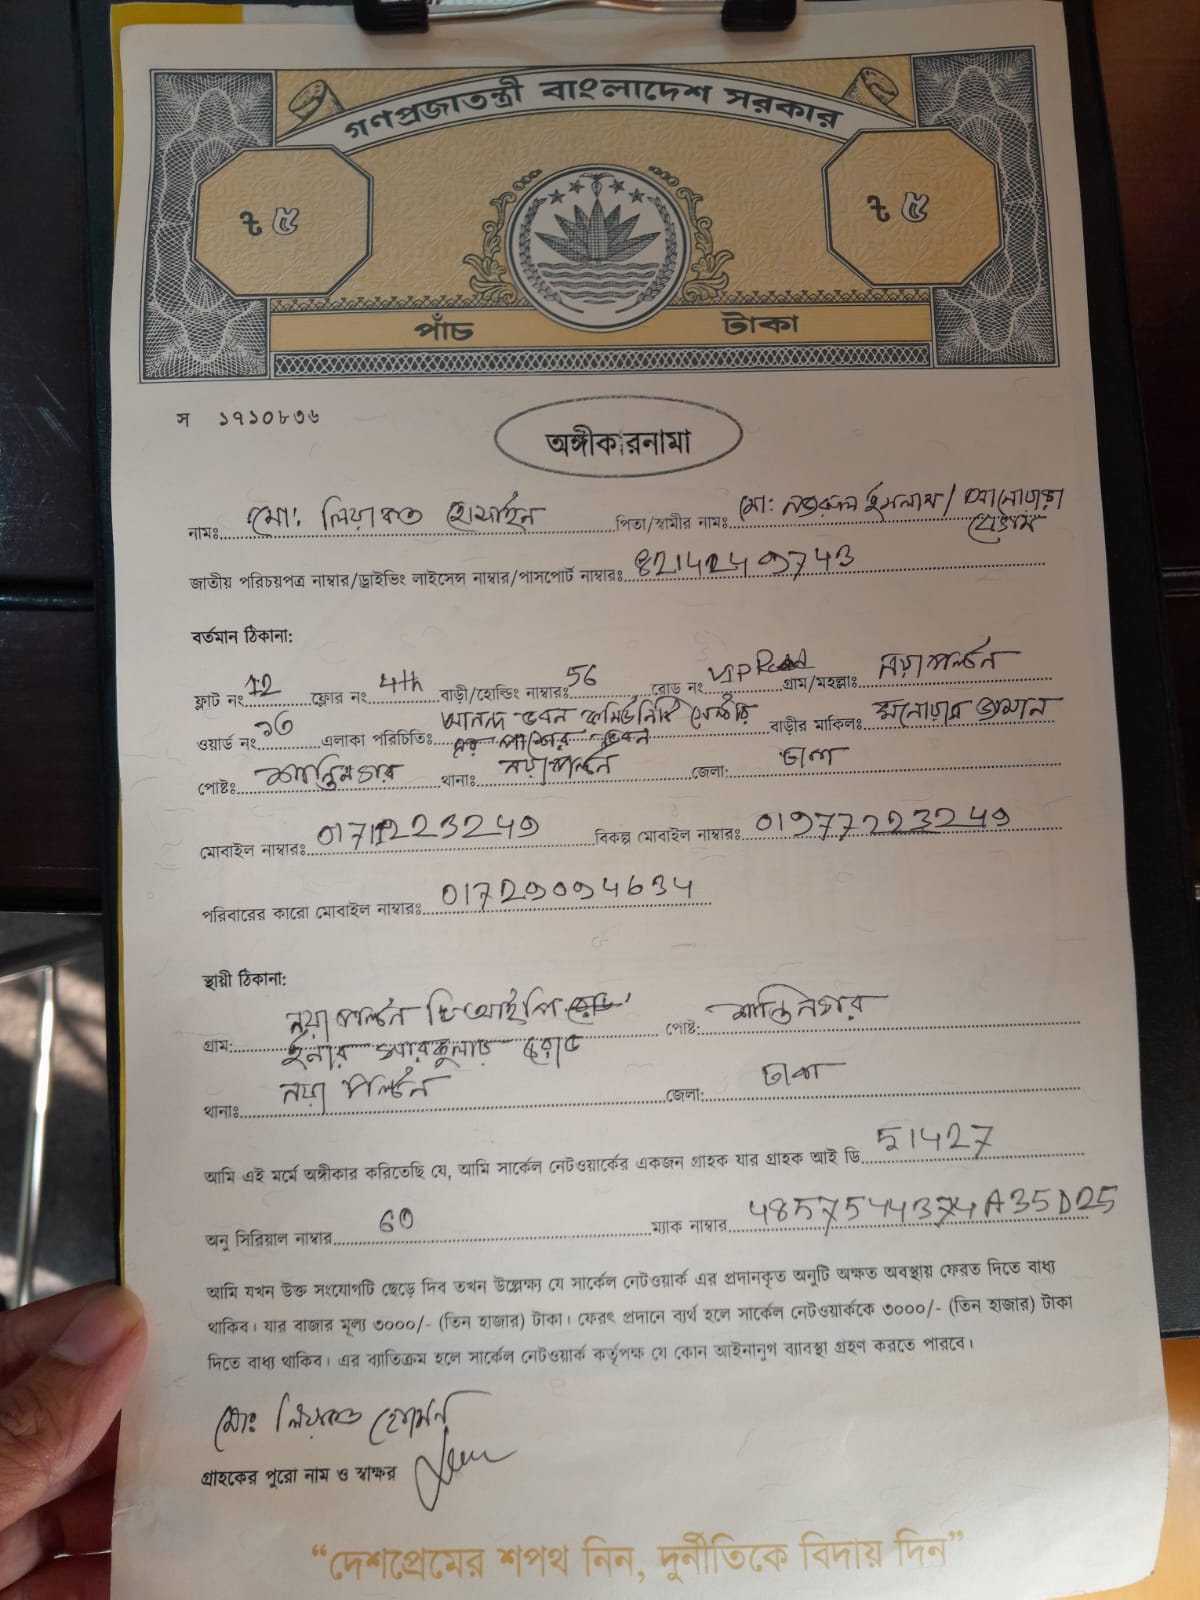 গণপ্রজাতন্ত্রী বাংলাদেশ সরকার
৳ ৫
৳ ৫
পাঁচ টাকা
স ১৭১০৮৩৬
অঙ্গীকারনামা
নামঃ মো: লিয়াকত হোসাইন পিতা/স্বামীর নামঃ মো: নজরুল ইসলাম/ আনোয়ারা বেগম
জাতীয় পরিচয়পত্র নাম্বার/ড্রাইভিং লাইসেন্স নাম্বার/পাসপোর্ট নাম্বারঃ
বর্তমান ঠিকানা:
ফ্লাট নং 12 ফ্লোর নং 4th বাড়ী/হোল্ডিং নাম্বারঃ 56 রোড নং VIP Road গ্রাম/মহল্লাঃ নয়া পল্টন
ওয়ার্ড নং ১৩ এলাকা পরিচিতিঃ আনন্দ ভবন কমিউনিটি সেন্টার এর পাশের ভবন বাড়ীর মালিকঃ মনোয়ার জামান
পোষ্টঃ শান্তিনগর থানাঃ নয়াপল্টন জেলা: ঢাকা
মোবাইল নাম্বারঃ 01711223249 বিকল্প মোবাইল নাম্বারঃ 01977223249
পরিবারের কারো মোবাইল নাম্বারঃ
স্থায়ী ঠিকানা:
গ্রাম: নয়া পল্টন ভি আই পি রোড পোষ্ট: শান্তিনগর
ইনার সারকুলার রোড
থানাঃ নয়া পল্টন জেলা: ঢাকা
আমি এই মর্মে অঙ্গীকার করিতেছি যে, আমি সার্কেল নেটওয়ার্কের একজন গ্রাহক যার গ্রাহক আই ডি 51427
অনু সিরিয়াল নাম্বার 60 ম্যাক নাম্বার 4857544374A35D25
আমি যখন উক্ত সংযোগটি ছেড়ে দিব তখন উল্লেক্ষ্য যে সার্কেল নেটওয়ার্ক এর প্রদানকৃত অনুটি অক্ষত অবস্থায় ফেরত দিতে বাধ্য
থাকিব। যার বাজার মূল্য ৩০০০/- (তিন হাজার) টাকা। ফেরৎ প্রদানে ব্যর্থ হলে সার্কেল নেটওয়ার্ককে ৩০০০/- (তিন হাজার) টাকা
দিতে বাধ্য থাকিব। এর ব্যাতিক্রম হলে সার্কেল নেটওয়ার্ক কর্তৃপক্ষ যে কোন আইনানুগ ব্যাবস্থা গ্রহণ করতে পারবে।
মো: লিয়াকত হোসেন
গ্রাহকের পুরো নাম ও স্বাক্ষর
“দেশপ্রেমের শপথ নিন, দুর্নীতিকে বিদায় দিন”